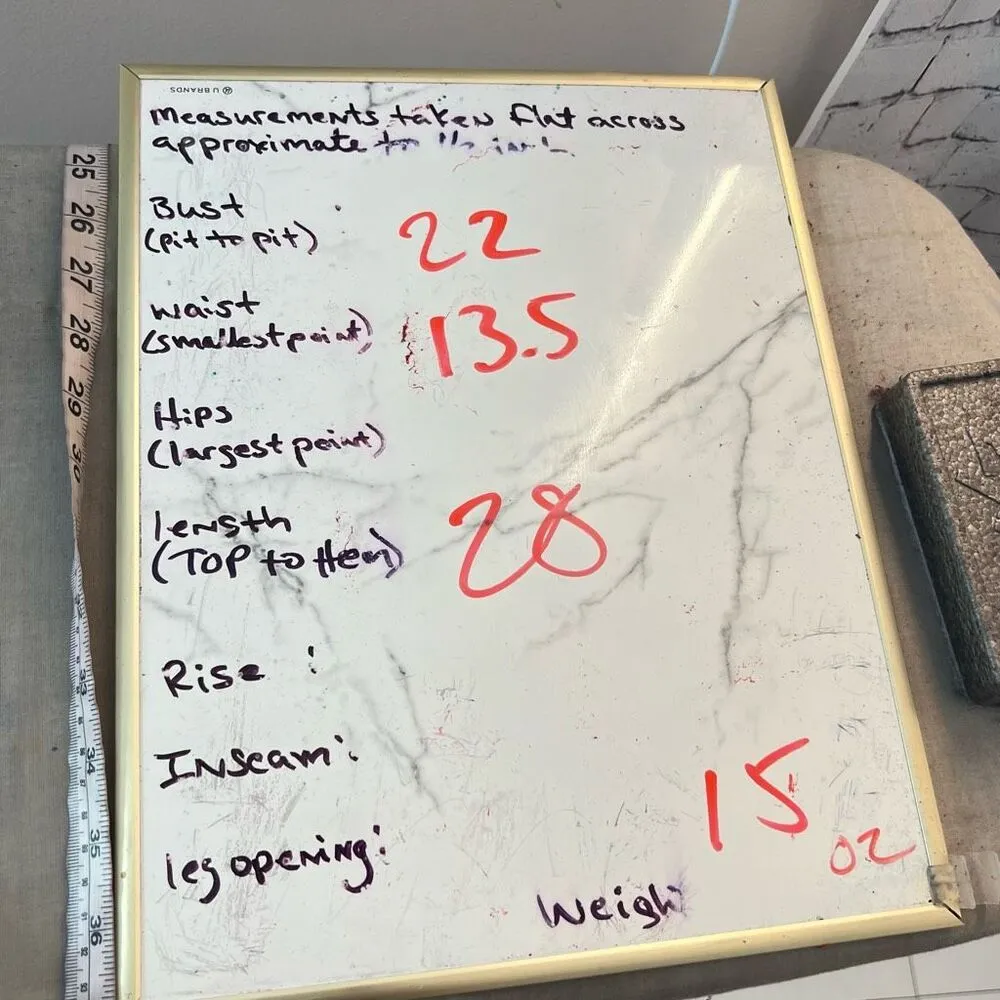 U BRANDS
Measurements taken flat across
approximate to
Bust
(pit to pit)
22
waist
(smallest point)
13.5
Hips
(largest point)
length
(TOP to Hem)
28
Rise :
Inseam :
leg opening :
15
oz
Weigh
25
26
27
28
29
30
33
34
35
36